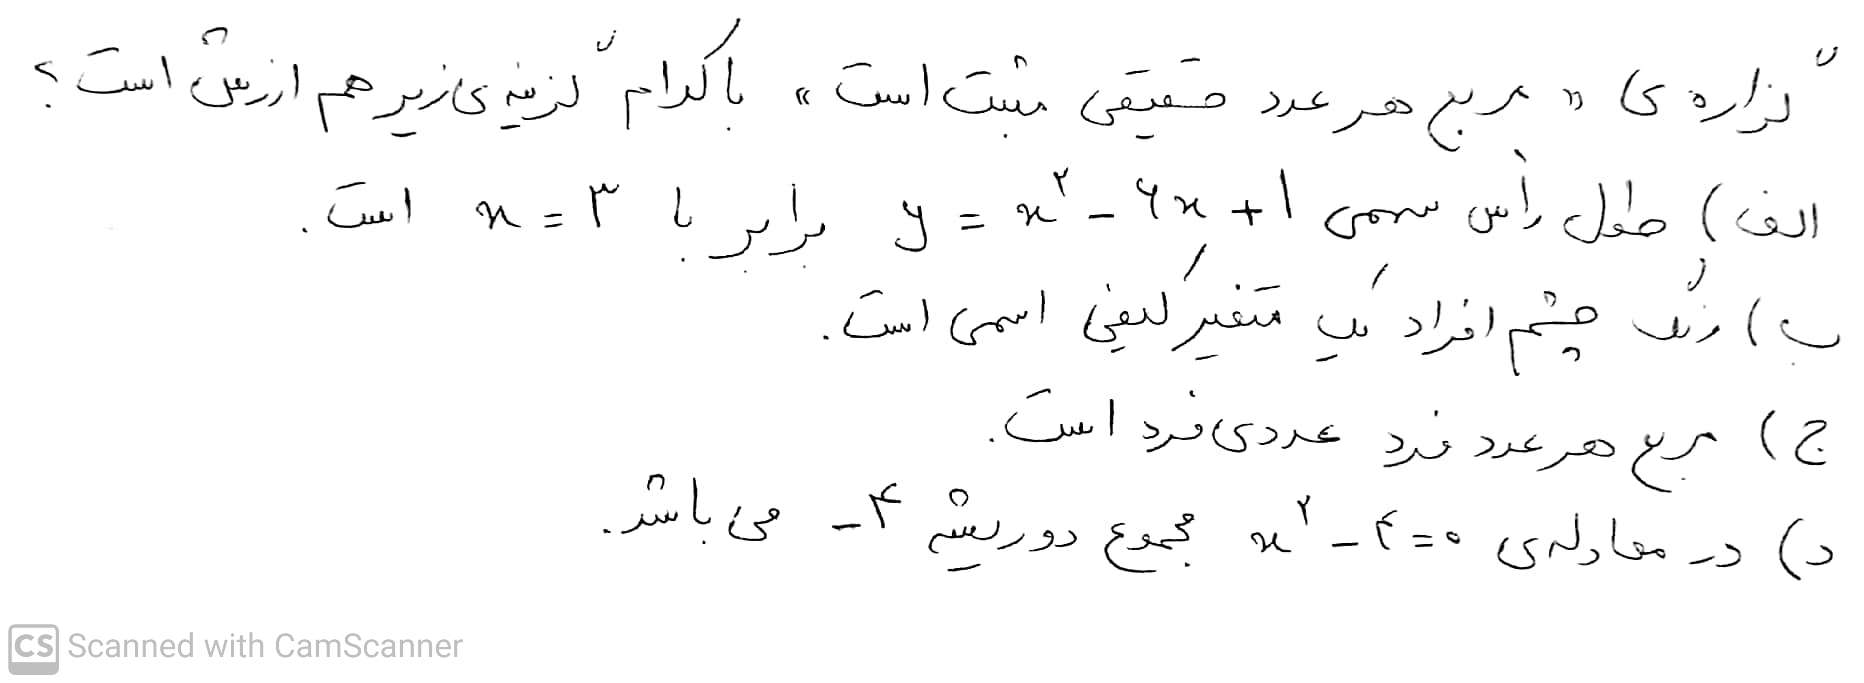 گزاره‌ی « مربع هر عدد حقیقی مثبت است » با کدام گزینه‌ی زیر هم ارزش است؟
الف) طول رأس سهمی y = x² - ۶x + ۱ برابر با x = ۳ است.
ب) رنگ چشم افراد یک متغیر کیفی اسمی است.
ج) مربع هر عدد فرد عددی فرد است.
د) در معادله‌ی x² - ۴ = ۰ مجموع دو ریشه -۴ می باشد.
CS Scanned with CamScanner